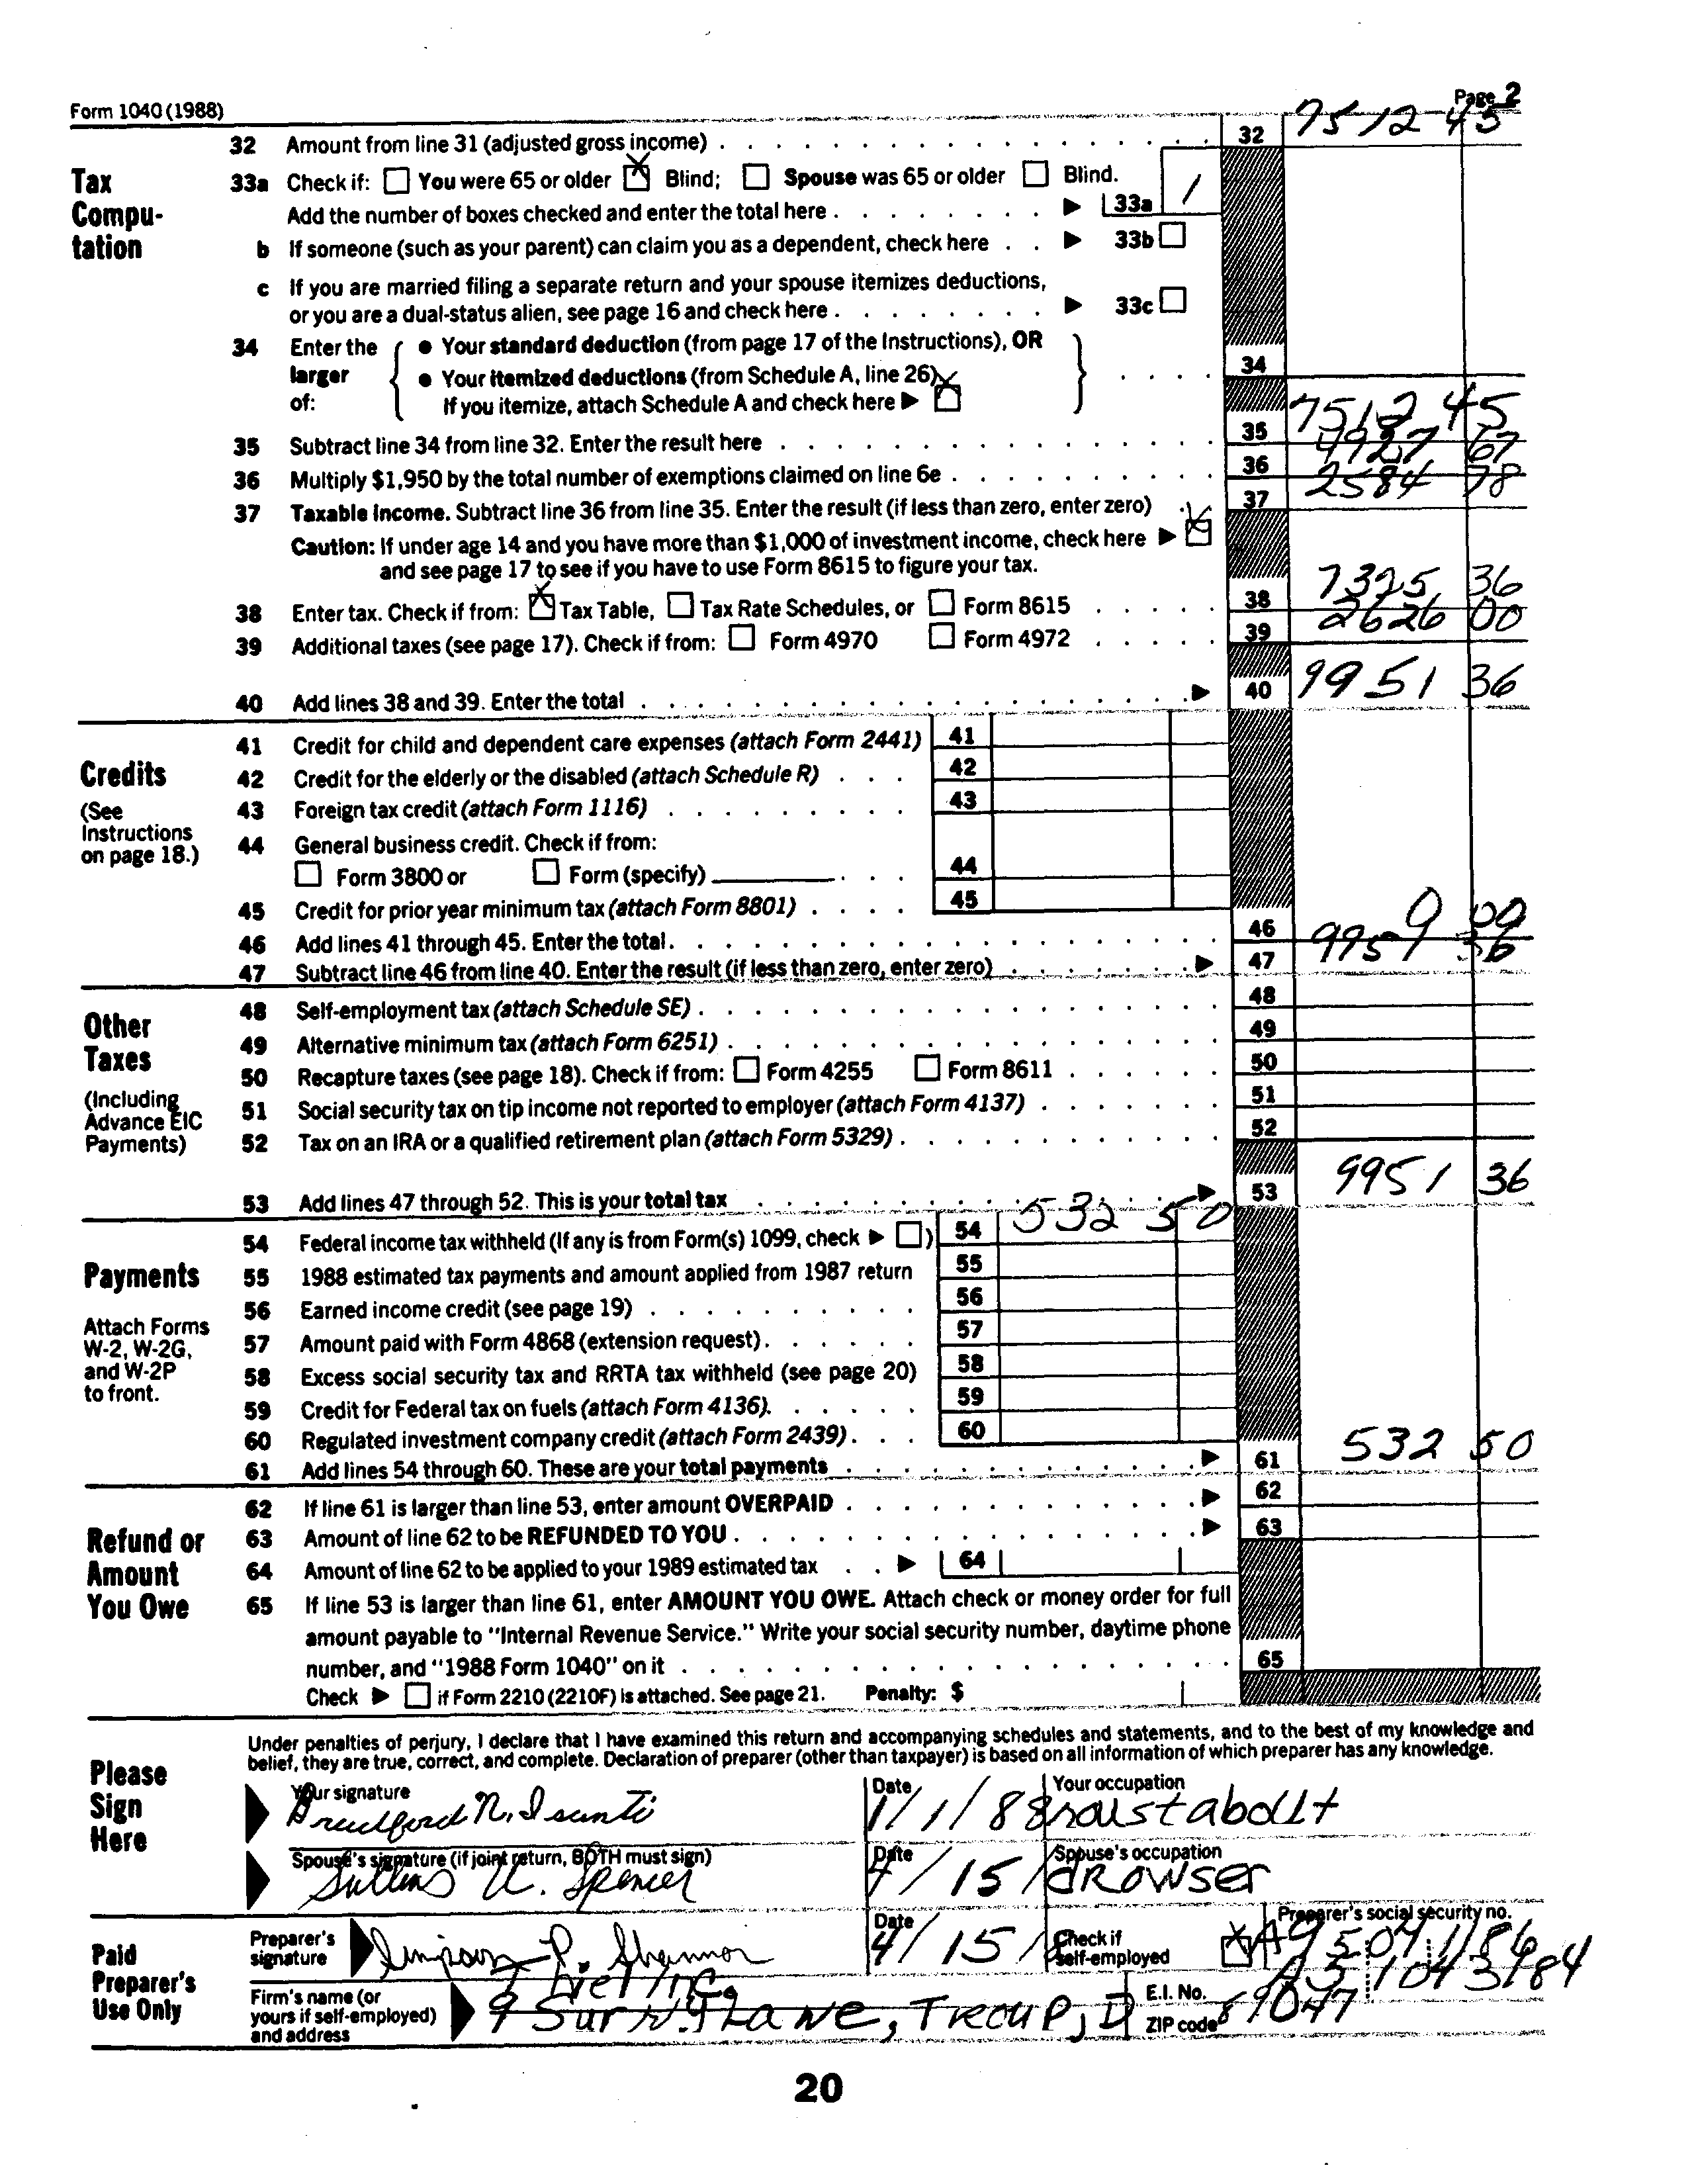 Form 1040 (1988)
Page 2
Tax Compu-tation
32 Amount from line 31 (adjusted gross income) 32 7512 45
33a Check if: You were 65 or older X Blind; Spouse was 65 or older Blind.
Add the number of boxes checked and enter the total here 33a 1
b If someone (such as your parent) can claim you as a dependent, check here 33b
c If you are married filing a separate return and your spouse itemizes deductions,
or you are a dual-status alien, see page 16 and check here 33c
34 Enter the larger of:
• Your standard deduction (from page 17 of the Instructions), OR
• Your itemized deductions (from Schedule A, line 26)
If you itemize, attach Schedule A and check here X
34
35 Subtract line 34 from line 32. Enter the result here 35 7512 45
36 Multiply $1,950 by the total number of exemptions claimed on line 6e 36 4927 67
37 Taxable income. Subtract line 36 from line 35. Enter the result (if less than zero, enter zero) 37 2584 78
Caution: If under age 14 and you have more than $1,000 of investment income, check here X
and see page 17 to see if you have to use Form 8615 to figure your tax.
38 Enter tax. Check if from: X Tax Table, Tax Rate Schedules, or Form 8615 38 7325 36
39 Additional taxes (see page 17). Check if from: Form 4970 Form 4972 39 2626 00
40 Add lines 38 and 39. Enter the total 40 9951 36
Credits
(See Instructions on page 18.)
41 Credit for child and dependent care expenses (attach Form 2441) 41
42 Credit for the elderly or the disabled (attach Schedule R) 42
43 Foreign tax credit (attach Form 1116) 43
44 General business credit. Check if from:
Form 3800 or Form (specify) 44
45 Credit for prior year minimum tax (attach Form 8801) 45
46 Add lines 41 through 45. Enter the total. 46 0 00
47 Subtract line 46 from line 40. Enter the result (if less than zero, enter zero) 47 9951 36
Other Taxes
(Including Advance EIC Payments)
48 Self-employment tax (attach Schedule SE) 48
49 Alternative minimum tax (attach Form 6251) 49
50 Recapture taxes (see page 18). Check if from: Form 4255 Form 8611 50
51 Social security tax on tip income not reported to employer (attach Form 4137) 51
52 Tax on an IRA or a qualified retirement plan (attach Form 5329) 52
53 Add lines 47 through 52. This is your total tax 53 9951 36
Payments
Attach Forms W-2, W-2G, and W-2P to front.
54 Federal income tax withheld (If any is from Form(s) 1099, check ) 54 532 50
55 1988 estimated tax payments and amount applied from 1987 return 55
56 Earned income credit (see page 19) 56
57 Amount paid with Form 4868 (extension request) 57
58 Excess social security tax and RRTA tax withheld (see page 20) 58
59 Credit for Federal tax on fuels (attach Form 4136). 59
60 Regulated investment company credit (attach Form 2439) 60
61 Add lines 54 through 60. These are your total payments 61 532 50
Refund or Amount You Owe
62 If line 61 is larger than line 53, enter amount OVERPAID 62
63 Amount of line 62 to be REFUNDED TO YOU 63
64 Amount of line 62 to be applied to your 1989 estimated tax 64
65 If line 53 is larger than line 61, enter AMOUNT YOU OWE. Attach check or money order for full
amount payable to "Internal Revenue Service." Write your social security number, daytime phone
number, and "1988 Form 1040" on it 65
Check if Form 2210 (2210F) is attached. See page 21. Penalty: $
Please Sign Here
Under penalties of perjury, I declare that I have examined this return and accompanying schedules and statements, and to the best of my knowledge and
belief, they are true, correct, and complete. Declaration of preparer (other than taxpayer) is based on all information of which preparer has any knowledge.
Your signature Date Your occupation
N. 1/1/88
Spouse's signature (if joint return, BOTH must sign) Date Spouse's occupation
U. Spencer 4/15/ dROWSER
Paid Preparer's Use Only
Preparer's signature Date Check if self-employed X Preparer's social security no.
Simpson P. Shannon 4/15/
Firm's name (or yours if self-employed) and address
E.I. No.
ZIP code
Lane, Troup,
20